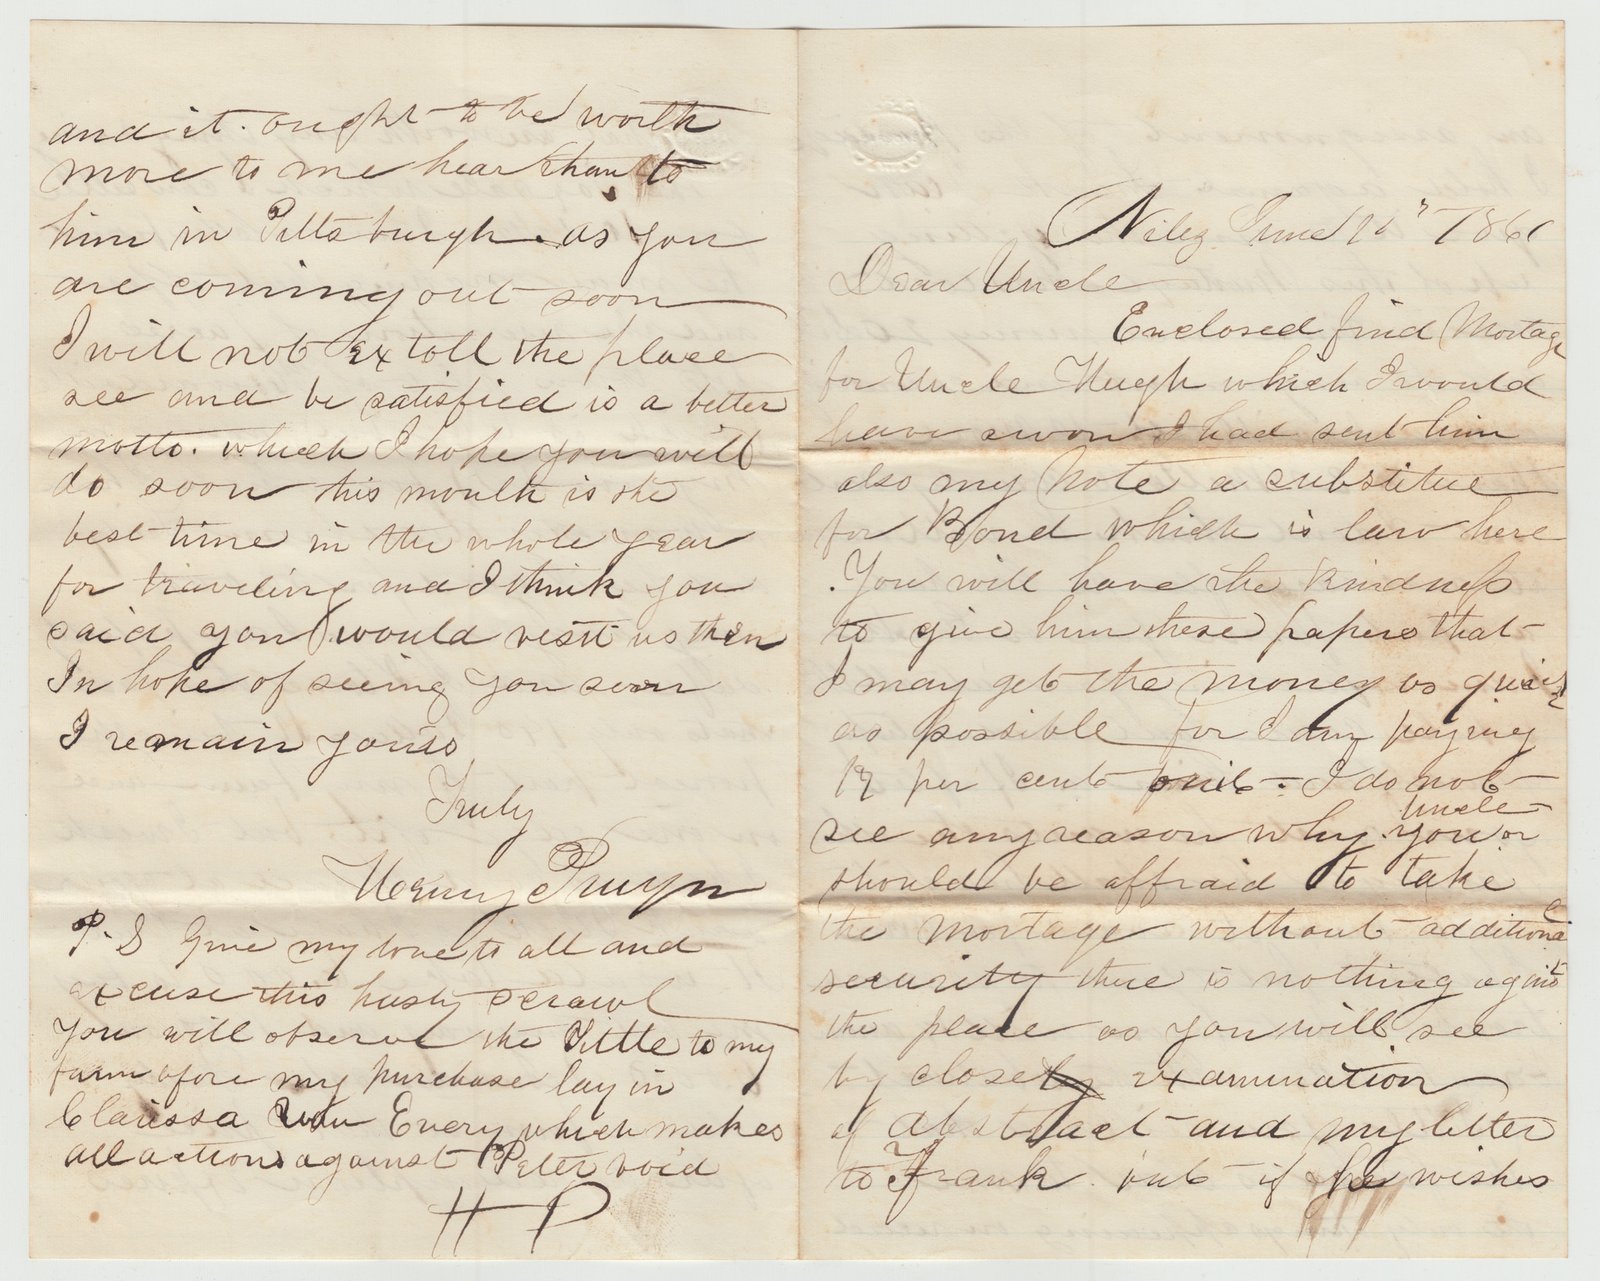 Niles June 16" 1861
Dear Uncle
Enclosed find Mortage
for Uncle Hugh which I would
have swon I had sent him
also my Note a substitue
for Bond which is law here
. You will have the kindness
to give him these papers that
I may get the money as quick
as possible for I am paying
per cent I do not
see any reason why you or Uncle
should be affraid to take
the Mortage without additional
security there is nothing against
the place as you will see
by closely examination
of Abstract and my letter
to Frank but if he wishes
and it. ought to be worth
more to me hear than to
him in Pittsburgh. as you
are coming out soon
I will not extoll the place
see and be satisfied is a better
motto. which I hope you will
do soon this month is the
best time in the whole year
for traveling and I think you
said you would visit us then
In hope of seeing you soon
I remain yours
Truly
Henry Pruyn
P.S Give my love to all and
excuse this hasty scrawl
You will observe the Tittle to my
farm afore my purchase lay in
Clarissa Van Every which makes
all actions against Peter void
H P